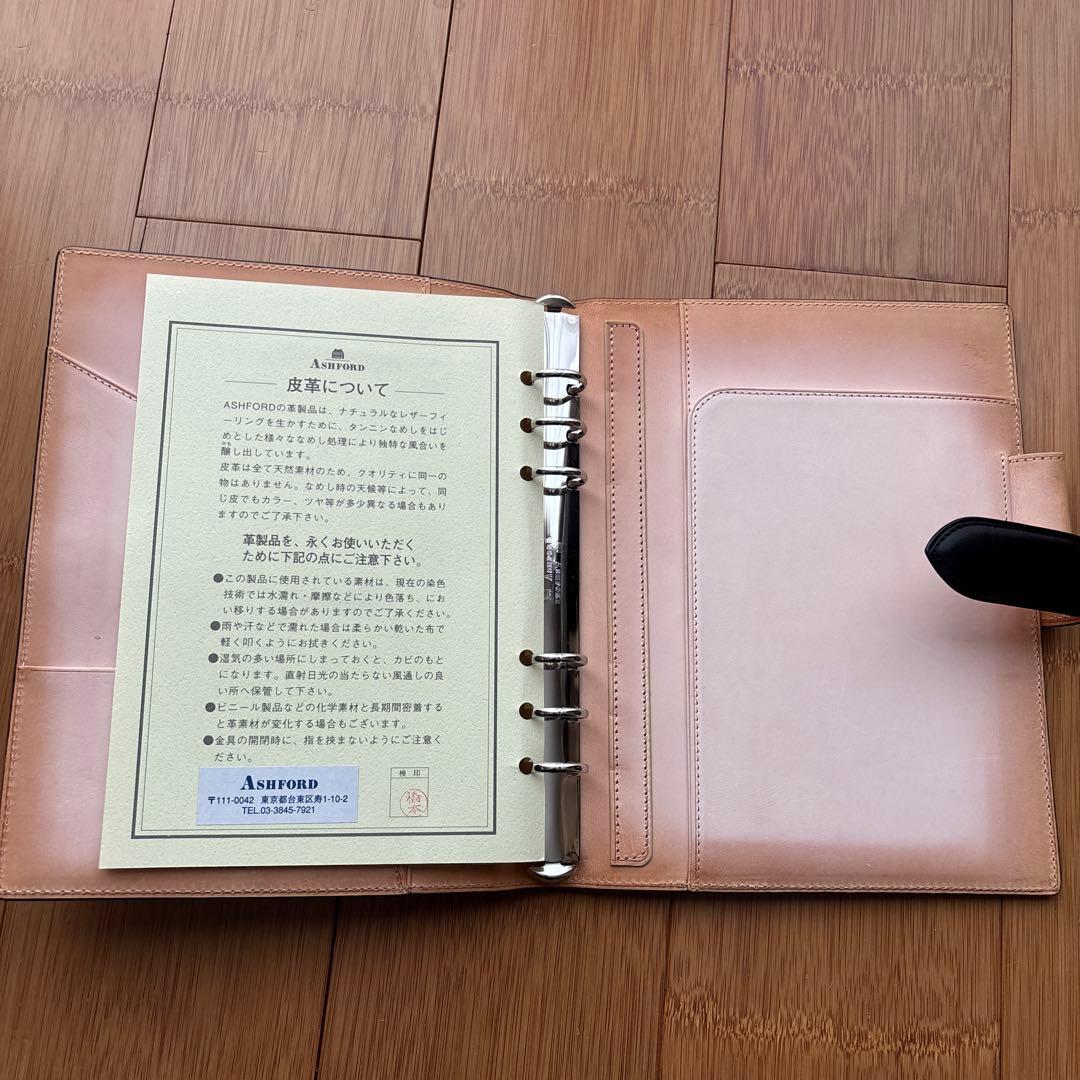 ASHFORD
皮革について
ASHFORDの革製品は、ナチュラルなレザーフィ
ーリングを生かすために、タンニンなめしをはじ
めとした様々ななめし処理により独特な風合いを
かも
醸し出しています。
皮革は全て天然素材のため、クオリティに同一の
物はありません。なめし時の天候等によって、同
じ皮でもカラー、ツヤ等が多少異なる場合もあり
ますのでご了承下さい。
革製品を、永くお使いいただく
ために下記の点にご注意下さい。
●この製品に使用されている素材は、現在の染色
技術では水濡れ・摩擦などにより色落ち、にお
い移りする場合がありますのでご了承ください。
●雨や汗などで濡れた場合は柔らかい乾いた布で
軽く叩くようにお拭きください。
●湿気の多い場所にしまっておくと、カビのもと
になります。直射日光の当たらない風通しの良
い所へ保管して下さい。
●ビニール製品などの化学素材と長期間密着する
と革素材が変化する場合もございます。
●金具の開閉時に、指を挟まないようにご注意く
ださい。
ASHFORD
〒111-0042 東京都台東区寿1-10-2
TEL.03-3845-7921
検印
橋本